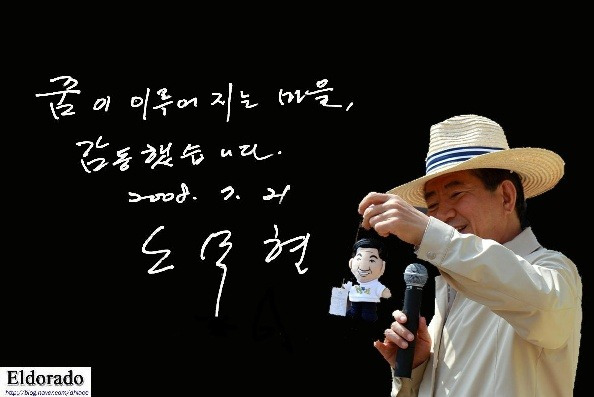 꿈이 이루어 지는 마을,
감동했습니다.
2008. 7. 21
노무현
Eldorado